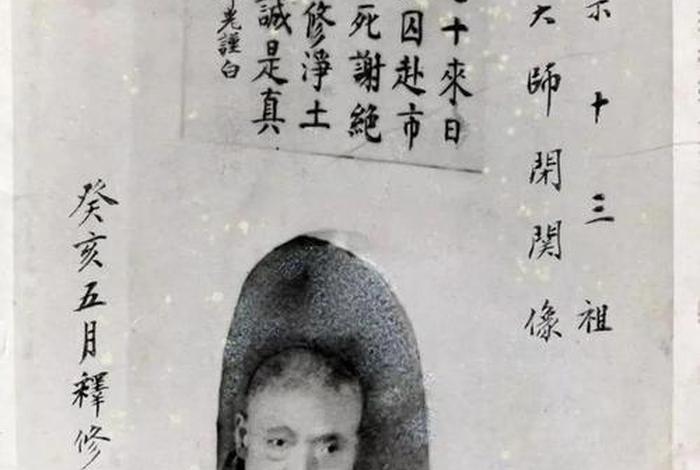 十三祖
大師閉関像
十來日
囚赴市
死謝絕
修淨土
誠是真
光謹白
癸亥五月釋修